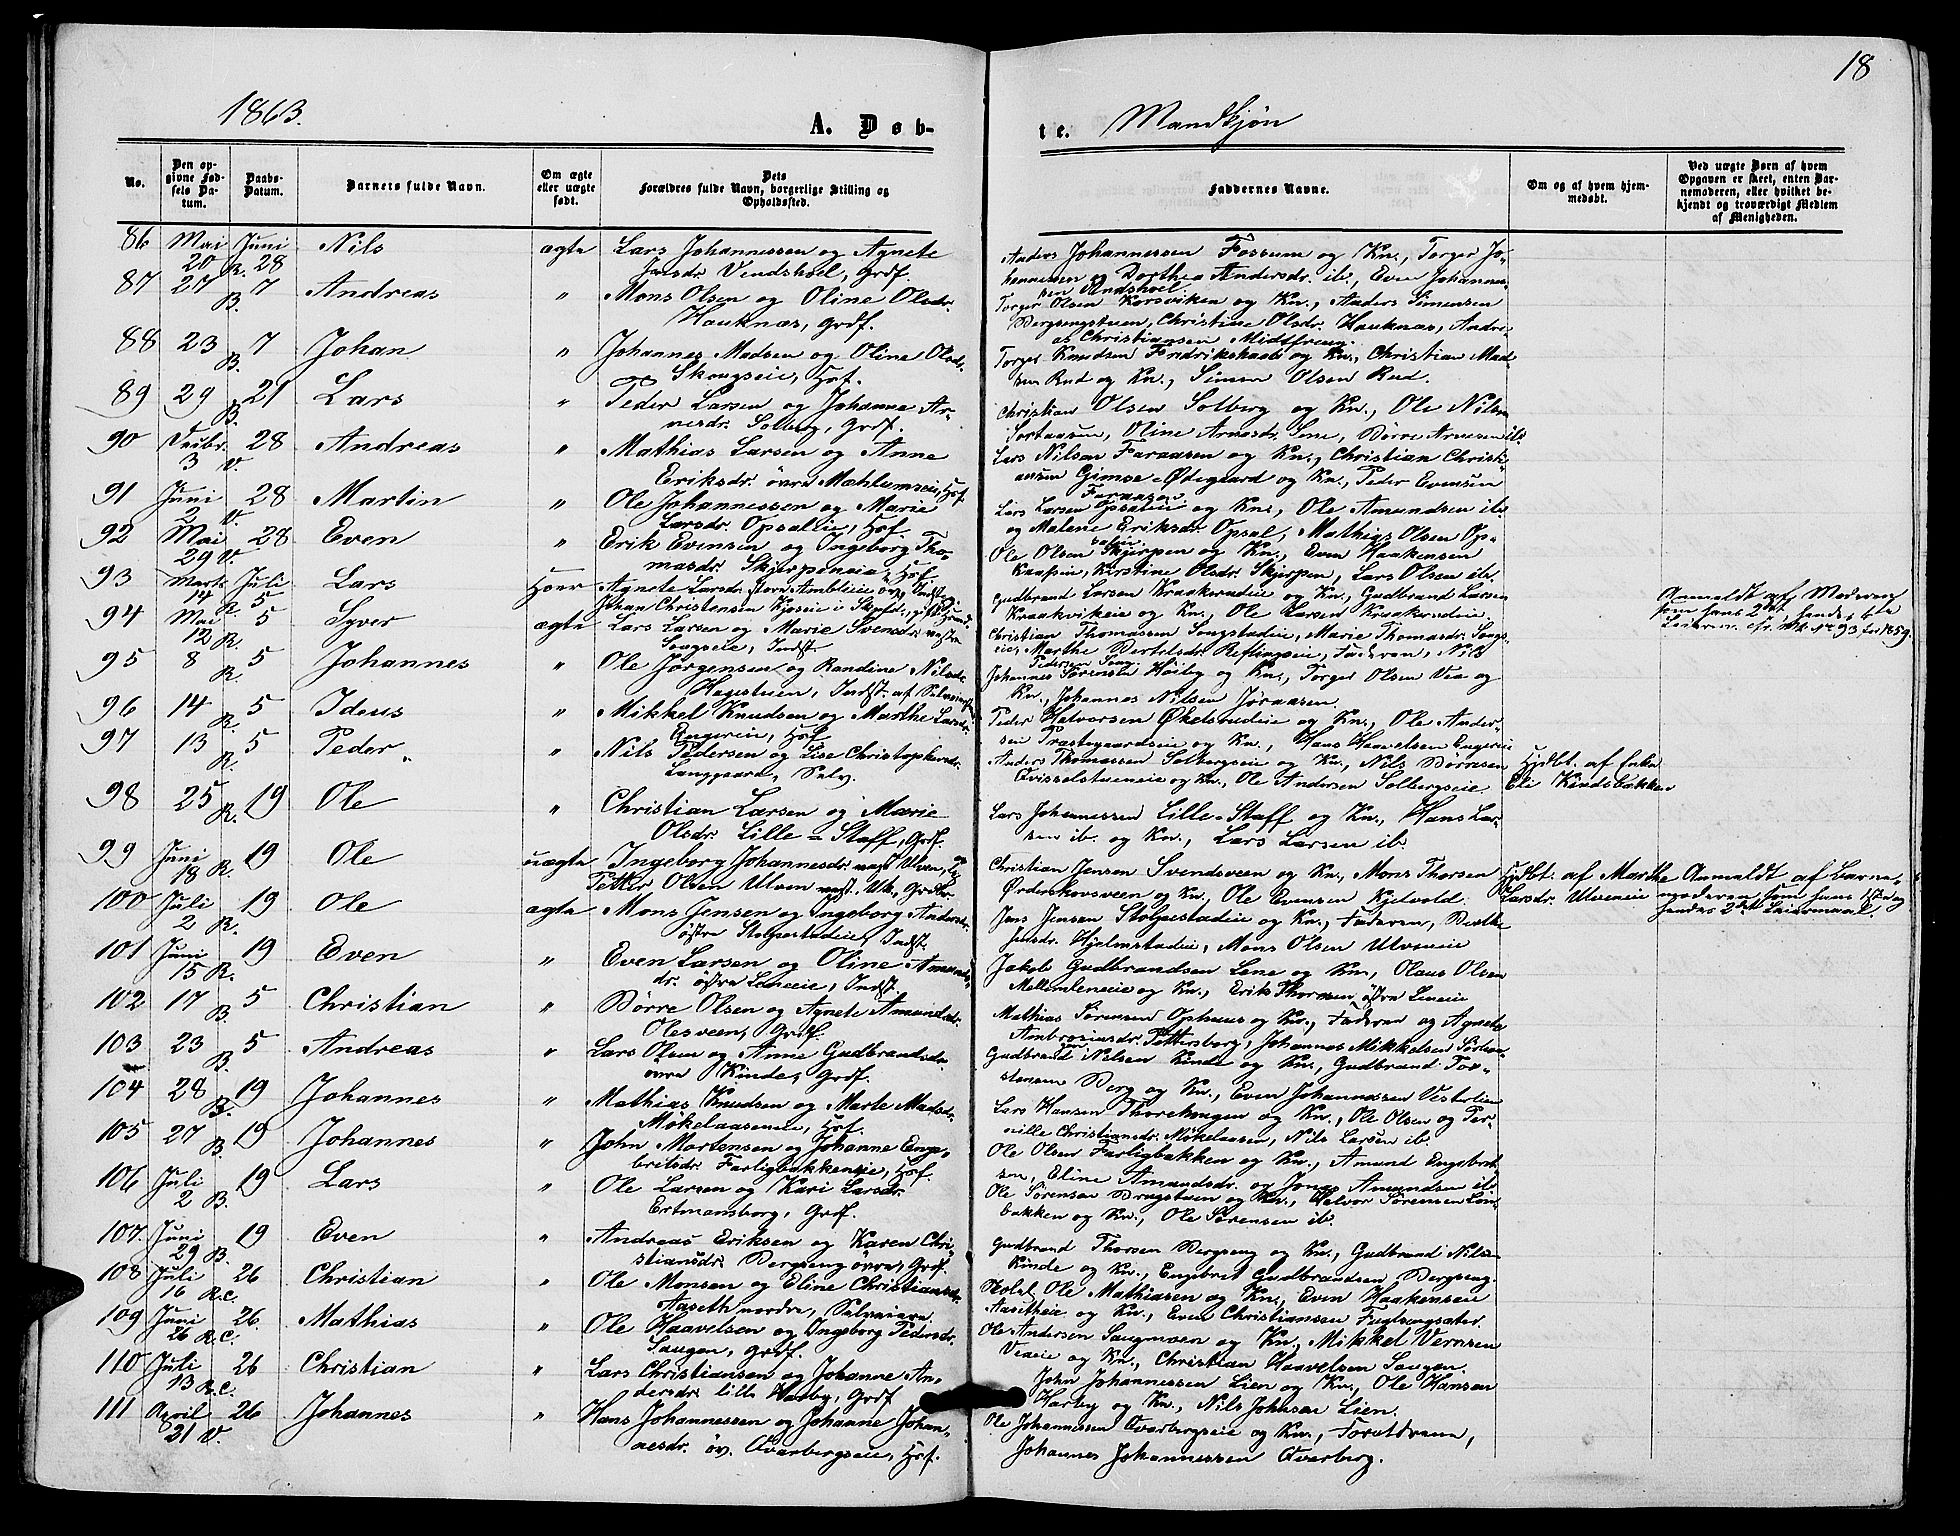 18
1863.
A. Døb-
te. Mandkjøn
No.
Den op-
givne Fød-
sels Da-
tum.
Daabs-
Datum.
Barnets fulde Navn.
Om ægte
eller uægte
født.
Dets
Forældres fulde Navn, borgerlige Stilling og
Opholdssted.
Faddernes Navne.
Om og af hvem hjem-
medøbt.
Ved uægte Børn af hvem
Opgaven er skeet, enten Bar-
nemoderen, eller hvilket be-
kjendt og troværdigt Medlem
af Menigheden.
86 Mai Juni Nils ægte Lars Johannessen og Agnete
20 R. 28 Jensdr. Vendshoel, Grdf.
Anders Johannessen Fossum og Kn., Torger Jo-
hannessen og Dorthea Andersdr. ib., Even Johannes-
sen Vendshoel
87 27 B. 7 Andreas " Mons Olsen og Oline Olsdr.
Hauknæs, Grdf.
Torger Olsen Korsviken og Kn., Anders Simensen
Bergsengstuen, Christine Olsdr. Hauknæs, Andre-
as Christiansen
88 23 B. 7 Johan " Johannes Madsen og Oline Olsdr.
Skougseie, Hsf.
Torger Knudsen Fredrikshaab og Kn., Christian Mad-
sen Rud og Kn., Simen Olsen Rud.
89 29 B. 21 Lars " Peder Larsen og Johanne Ar-
nesdr. Solberg, Grdf.
Christian Olsen Solberg og Kn., Ole Nilsen
Oline Arnesdr. Børre Arnesen ib.
90 Decbr. 28 Andreas " Mathias Larsen og Anne
3 V. Eriksdr. övre Mæhlumseie, Hsf.
Lars Nilsen Faraasen og Kn., Christian Christi-
ansen Gimse-Ødegaard og Kn., Peder Evensen
Faraasen
91 Juni 28 Martin " Ole Johannessen og Marie
2 V. Larsdr. Opsaleie, Hsf.
Lars Larsen Opsaleie og Kn., Ole Amundsen ib.
og Malene Eriksdr. Opsal, Mathias Olsen Op-
saleie.
92 Mai 28 Even " Erik Evensen og Ingeborg Tho-
29 V. masdr. Skjerpeneie, Hsf.
Ole Olsen Skjerpen og Kn., Even Haakensen
Kirstine Olsdr. Skjerpen, Lars Olsen ib.
93 Marts Juli Lars Hoer Agnete Larsdr. store Ambleie öv., Indst. og
14 R. 5 Johan Christensen
Gudbrand Larsen Kraakerudeie og Kn., Gudbrand Larsen
Kraakvikeie og Kn., Ole Larsen Kraakerudeie
Anmeldt af Moderen
som hans 2det hendes 6te
Leierm. cfr. Mk. No. 93 for 1859.
94 Mai 5 Syver ægte Lars Larsen og Marie Svensdr. vestre
12 R. Songseie, Indst.
Christian Thomassen Songstadeie, Marie Thomasdr. Songs-
eie, Marthe Bertelsdr. Reflingseie, Faderen, Nils
Pedersen Song
95 8 R. 5 Johannes " Ole Jörgensen og Randine Nilsdr.
Hagestuen, Indst. af
Johannes Sörensen Höiby og Kn., Torger Olsen Vea og
Kn., Johannes Nilsen Jöraasen.
96 14 R. 5 Ideus " Mikkel Knudsen og Marthe Larsdr.
Engereie, Hsf.
Peder Halvorsen Økelsrudeie og Kn., Ole Ander-
sen Præstegaardseie og Kn., Hans Haavelsen Engereie
97 13 R. 5 Peder " Nils Pedersen og Lise Christophersdr.
Langgaard, Selv.
Anders Thomassen Solbergseie og Kn., Nils Børresen
Qvisselstueneie og Kn., Ole Andersen Solbergseie.
Hjdbt. af Enke
Eli Kindsbakken
98 25 R. 19 Ole " Christian Larsen og Marie
Olsdr. Lille-Staff, Grdf.
Lars Johannessen Lille-Staff og Kn., Hans Lar-
sen ib. og Kn., Lars Larsen ib.
99 Juni 19 Ole uægte Ingeborg Johannesdr. vest. Ulven, Pe
18 R. Petter Olsen Ulven vest. Uk., Grdbr.
Christian Jensen Svendsveen og Kn., Mons Thorsen
og Kn., Ole Evensen Kjelvold.
Hjdbt. af Marthe
Larsdr. Ulveneie
Anmeldt af Barne-
moderen som hans 1ste og
hendes 2det Leiermaal.
100 Juli 19 Ole ægte Mons Jensen og Ingeborg Andersdr.
2 R. östre Stolpestadeie, Indst.
Jens Jensen Stolpestadeie og Kn., Faderen, Berthe
Jensdr. Hjelmstadeie, Mons Olsen Ulveneie
101 Juni 19 Even " Even Larsen og Oline Amunds-
15 R. dr. östre Leneeie, Indst.
Jakob Gudbrandsen Lene og Kn., Olaus Olsen
Mellemleneeie og Kn., Erik Thorsen östre Leneeie
102 17 B. 5 Christian " Børre Olsen og Agnete Amundsdr.
Olesveen, Grdf.
Mathias Sörensen Ophuus og Kn., Faderen og Agnete
Ambrosiusdr. Pettersborg, Johannes Mikkelsen
103 23 B. 5 Andreas " Lars Olsen og Anne Gudbrandsdr.
övre Kinde, Grdf.
Gudbrand Nilsen Kinde og Kn., Gudbrand Tor-
stensen Berg og Kn., Even Johannessen Vesterlien
104 28 B. 19 Johannes " Mathias Knudsen og Marte Madsdr.
Mökelaaseneie, Hsf.
Lars Hansen Thorehaugen og Kn., Ole Olsen og Per-
nille Christiansdr. Mökelaasen, Nils Larsen ib.
105 27 B. 19 Johannes " John Mortensen og Johanne Enge-
bretsdr. Farligbakkeneie, Hsf.
Ole Olsen Farligbakken og Kn., Amund Engebret-
sen, Eline Amundsdr. og Jonas Amundsen ib.
106 Juli 19 Lars " Ole Larsen og Kari Larsdr.
2 B. Ertmansborg, Grdf.
Ole Sörensen Brugstuen og Kn., Halvor Sörensen Lön-
bakken og Kn., Ole Sörensen ib.
107. Juni 19 Even " Andreas Eriksen og Karen Chri-
29 B. stiansdr. Bergseng övre, Grdf.
Gudbrand Thorsen Bergseng og Kn., Gudbrand Nilsen
Kinde og Kn., Engebret Gudbrandsen Bergseng.
108 Juli 26 Christian " Ole Monsen og Eline Christiansdr.
16 R.C. Aaseth nordre, Selveiere.
Skolel. Ole Mathiasen og Kn., Even Haakensen
Aasetheie og Kn., Even Christiansen Fuglsengsæter.
109 Juni 26. Mathias " Ole Haavelsen og Ingeborg Pedersdr.
26 R.C. Saugen, Grdf.
Ole Andersen Saugmoen og Kn., Mikkel Vernsen
Veaeie og Kn., Christian Haavelsen Saugen.
110 Juli 26 Christian " Lars Christiansen og Johanne An-
13 R.C. dersdr. lille Harby, Grdf
John Johannessen Lien og Kn., Ole Hansen
Harby og Kn., Nils Johnsen Lien.
111 April 26 Johannes " Hans Johannessen og Johanne Johan-
21 V. nesdr. öv. Overbergseie, Hsf.
Ole Johannessen Overbergseie og Kn., Forældrene,
Johannes Johannessen Overberg.